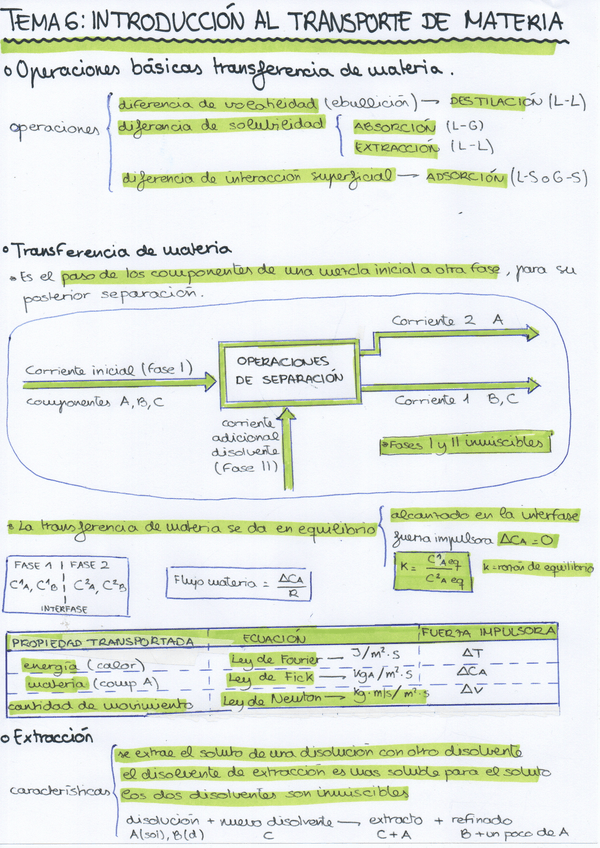 TEMA 6: INTRODUCCIÓN AL TRANSPORTE DE MATERIA
o Operaciones básicas transferencia de materia.
operaciones
diferencia de volatilidad (ebullición) → DESTILACIÓN (L-L)
diferencia de solubilidad
ABSORCIÓN (L-G)
EXTRACCIÓN (L-L)
diferencia de interacción superficial → ADSORCIÓN (L-S o G-S)
• Transferencia de materia
* Es el paso de los componentes de una mezcla inicial a otra fase, para su
posterior separación.
Corriente inicial (fase I)
componentes A, B, C
OPERACIONES
DE SEPARACIÓN
Corriente 2 A
Corriente 1 B, C
corriente
adicional
disolvente
(Fase II)
*Fases I y II inmiscibles
* La transferencia de materia se da en equilibrio
alcanzado en la interfase
fuerza impulsora ΔCA = 0
K = C¹A eq / C²A eq
k = razón de equilibrio
FASE 1 | FASE 2
C¹A, C¹B | C²A, C²B
INTERFASE
Flujo materia = ΔCA / R
PROPIEDAD TRANSPORTADA | ECUACIÓN | FUERZA IMPULSORA
energía (calor) | Ley de Fourier → J/m²·s | ΔT
materia (comp A) | Ley de Fick → kgA/m²·s | ΔCA
cantidad de movimiento | Ley de Newton → kg·m/s/m²·s | ΔV
o Extracción
características
se extrae el soluto de una disolución con otro disolvente
el disolvente de extracción es mas soluble para el soluto
los dos disolventes son inmiscibles
disolución + nuevo disolvente → extracto + refinado
A(sol), B(d) C C+A B + un poco de A